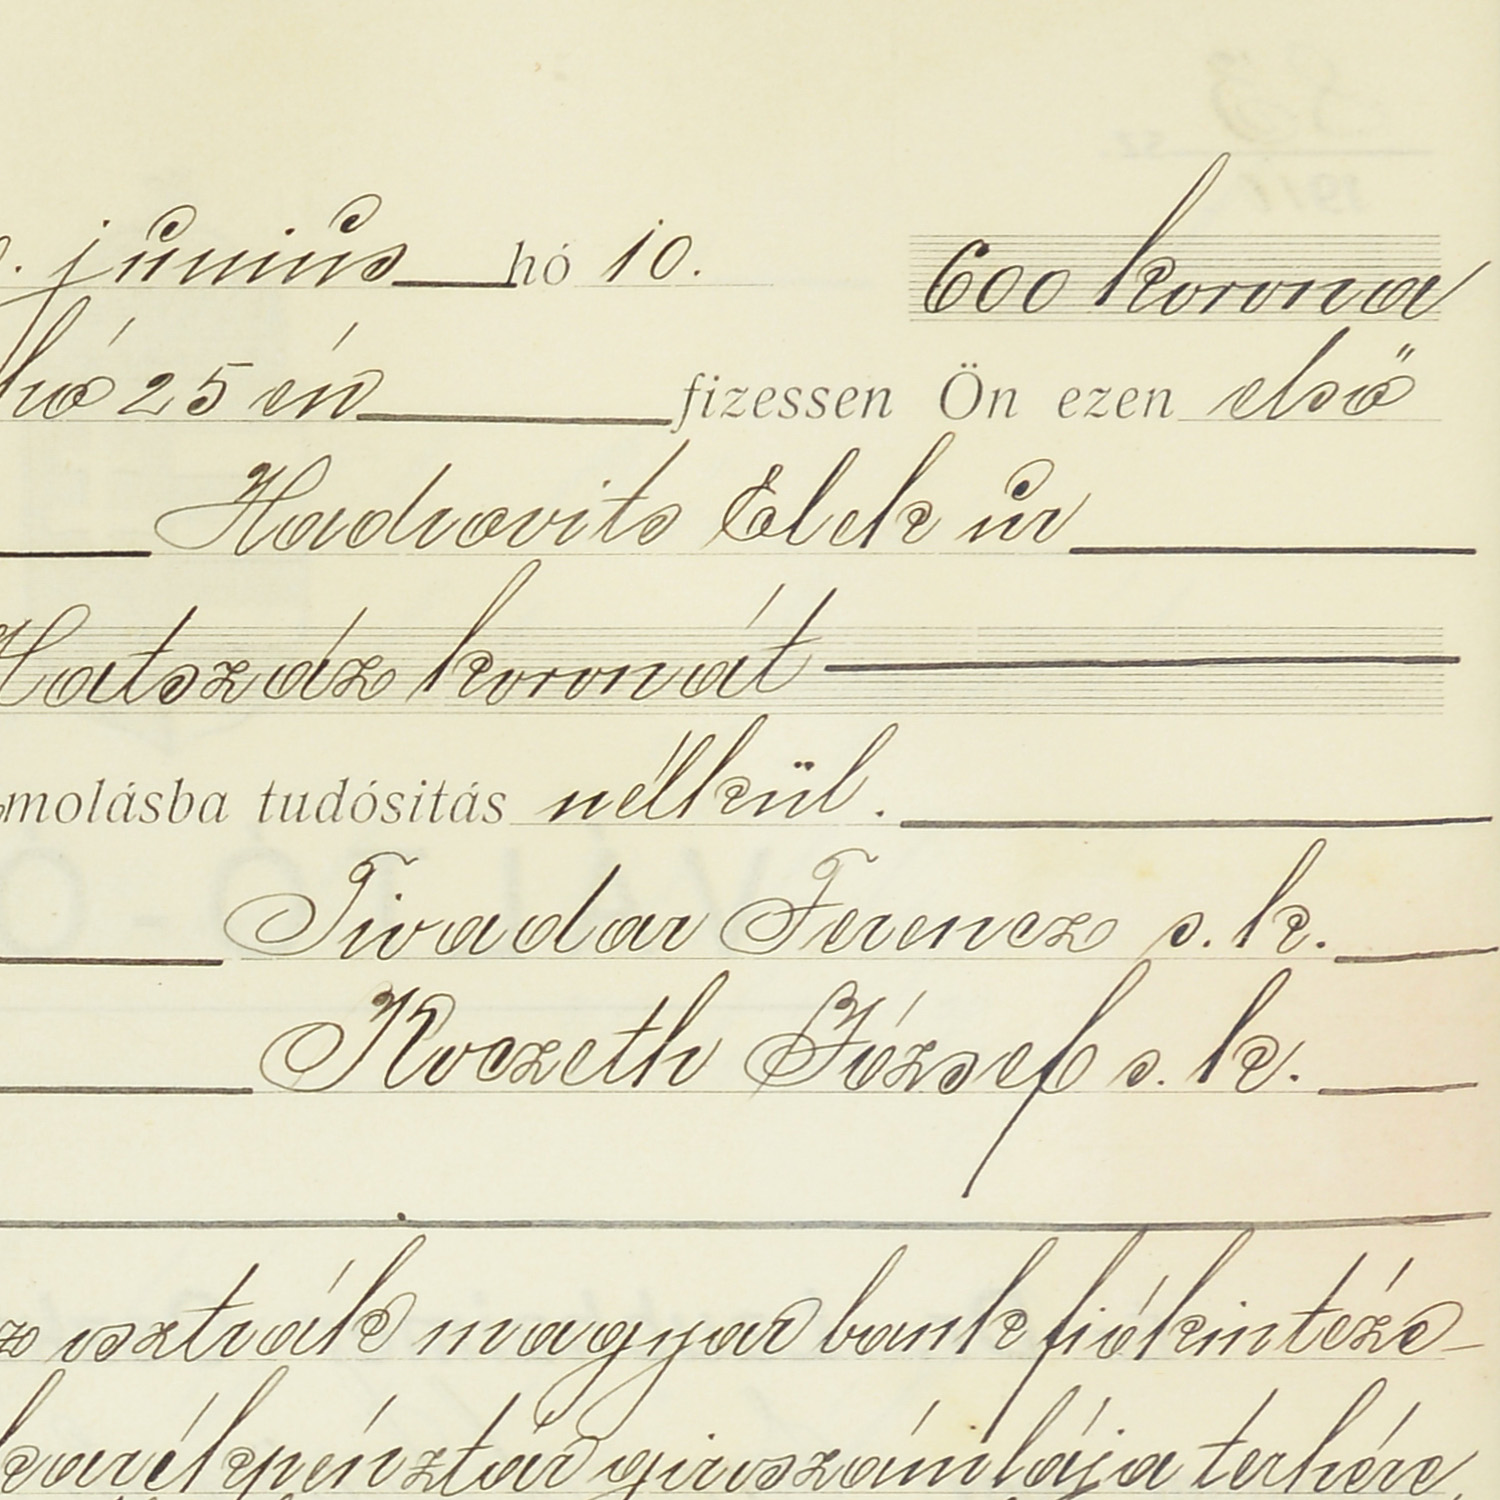 június hó 10. 600 korona
hó 25 én fizessen Ön ezen első
Hadrovits Elek úr
Hatszáz koronát
molásba tudósitás nélkül.
Tivadar Ferencz s. k.
Koczeth József s. k.
osztrák magyar bank fiókintéze-
karékpénztár giroszámlája terhére,